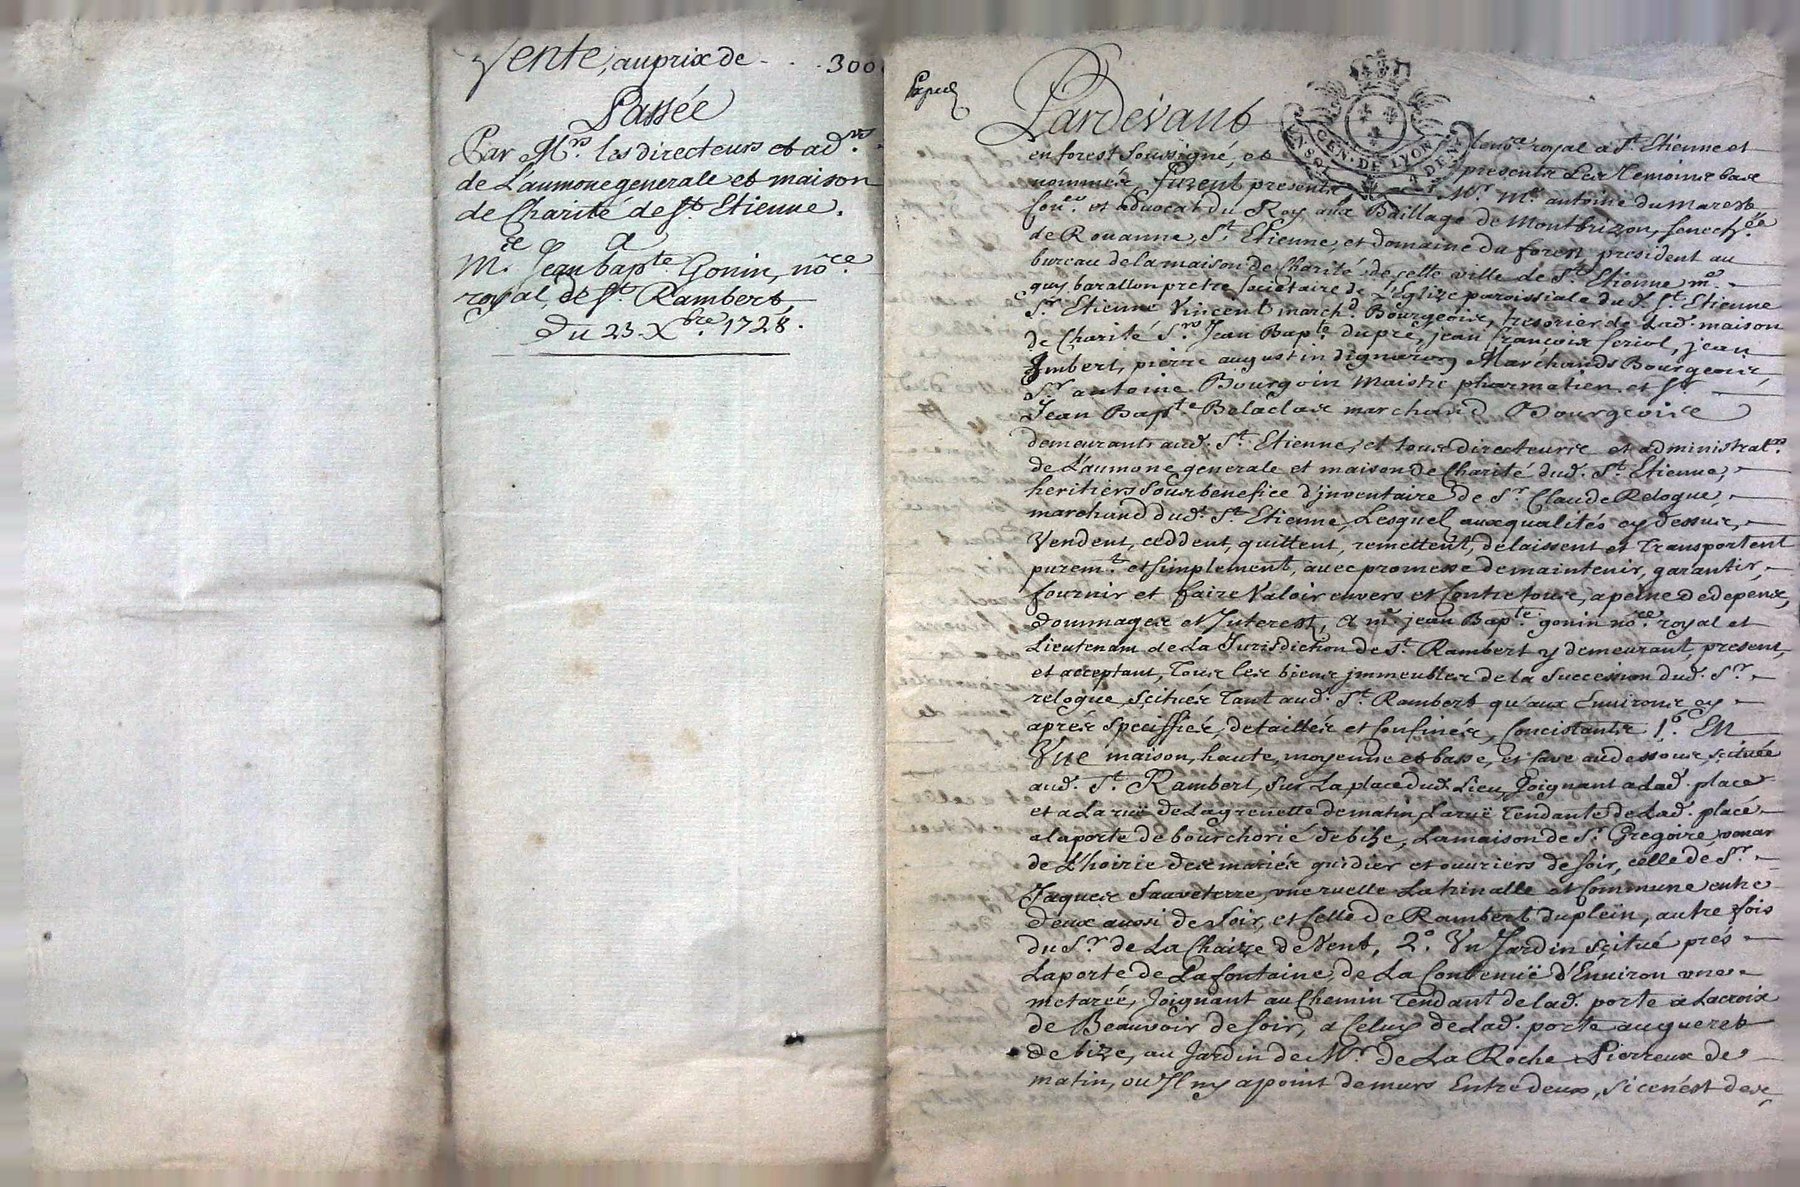 Vente, au prix de - . . . 300
Passée
Par Mrs. les directeurs et adrs.
de L'aumone generale et maison
de Charité de St. Etienne.
a
Me. Jean bapte. Gonin, nore.
royal, de St. Rambert,
Du 23. Xbre 1728.
GEN. DE LYON
Pardevant
nore. royal a St. Etienne et
en forest soussigné, et presents Les Temoins bas
nommés, furent presents Mr. Me. antoine du Marest
coner. et advocat du Roy aux Baillage de Montbrizon, senechée.
de Rouanne, St. Etienne, et domaine du forest, president au
bureau de la maison de Charité de cette ville de St. Etienne me.
guy barallon pretre societaire de L'Eglize paroissiale dud. St. Etienne
Sr. Etienne Vincent marchd. Bourgeois, tresorier de Lad. maison
de Charité Srs. Jean Bapte. dupré, jean françois feriol, jean
Jmbert, pierre augustin Marchands Bourgeois,
Sr. antoine Bourgoin Maistre pharmatien et Sr.
Jean Bapte. Balaclas marchand Bourgeoise
demeurants aud. St. Etienne, et tous directeurs et administratrs.
de L'aumone generale et maison de Charité dud. St. Etienne,
heritiers sous benefice d'jnventaire de Sr. Claude Relogue,
marchand dud. St. Etienne, Lesquels aux qualités cy dessus,
Vendent, ceddent, quittent, remettent, delaissent et Transportent
puremt. et simplement, avec promesse de maintenir, garantir,
fournir et faire Valoir envers et Contre tous, a peine de depens,
dommages et Jnterest, a me. jean Bapte. gonin nore. royal et
Lieutenant de La Jurisdiction de St. Rambert y demeurant, present,
et acceptant, Tous les biens jmmeubles de la Succession dud. Sr.
relogue, scitués Tant aud. St. Rambert qu'aux Environs cy
aprés speciffiés, detaillés et Confinés, Concistants 1.° En
Vne maison, haute, moyenne et basse, et cave au dessous, scituée
aud. St. Rambert, sur La place dud. Lieu, Joignant a Lad. place
et a La ruë de La grenette de matin, La ruë Tendante de Lad. place
a la porte de bourchorié de bize, La maison de Sr. Gregoire, venant
de L'hoirie des mariés guidier et ouuriers de soir, celle de Sr.
Jaques Sauveterre, vne ruelle Latrinalle et Commune entre
deux aussi de soir, et Celle de Rambert duplein, autre fois
du Sr. de La Chaize de Vent, 2.° Vn Jardin scitué prés
La porte de La fontaine, de La Contenuë d'Environ vne
metareé, Joignant au Chemin Tendant de lad. porte a Lacroix
de Beauvoir de soir, a Celuy de Lad. porte au gueret
de bize, au Jardin de Mr. de La Roche Pierreux de
matin, ou Jl n'y a point de murs Entre deux, si ce n'est des